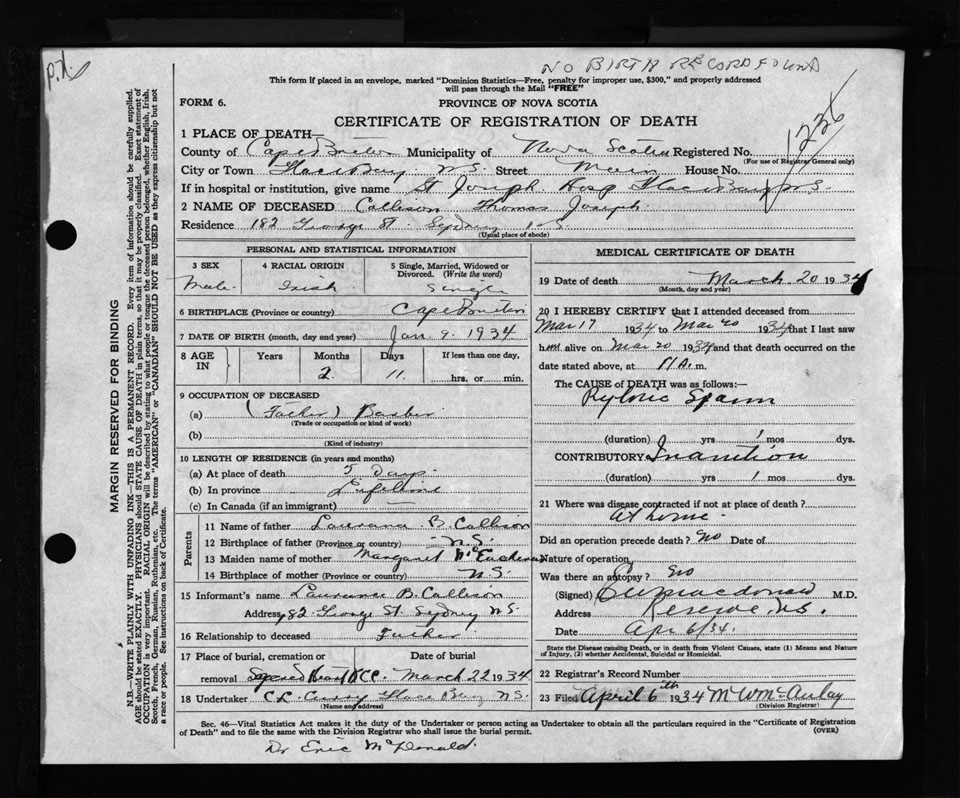 NO BIRTH RECORD FOUND
This form if placed in an envelope, marked "Dominion Statistics—Free, penalty for improper use, $300," and properly addressed
will pass through the Mail "FREE"
FORM 6.
PROVINCE OF NOVA SCOTIA
CERTIFICATE OF REGISTRATION OF DEATH
1 PLACE OF DEATH—
County of Cape Breton Municipality of Nova Scotia Registered No. 1236
(For use of Registrar General only)
City or Town Glace Bay. N.S. Street Main House No.
If in hospital or institution, give name St Joseph Hosp Glace Bay N.S.
2 NAME OF DECEASED Callison Thomas Joseph
Residence 182 George St. Sydney N.S.
(Usual place of abode)
PERSONAL AND STATISTICAL INFORMATION
3 SEX 4 RACIAL ORIGIN 5 Single, Married, Widowed or Divorced. (Write the word)
Male Irish Single
6 BIRTHPLACE (Province or country) Cape Breton
7 DATE OF BIRTH (month, day and year) Jan. 9. 1934
8 AGE IN Years Months Days If less than one day,
2 11. hrs. or min.
9 OCCUPATION OF DECEASED
(a) (Father) Barber
(Trade or occupation or kind of work)
(b)
(Kind of industry)
10 LENGTH OF RESIDENCE (in years and months)
(a) At place of death Days
(b) In province Lifetime
(c) In Canada (if an immigrant)
Parents
11 Name of father Laurance B. Callison
12 Birthplace of father (Province or country) N.S.
13 Maiden name of mother Margaret McEachern
14 Birthplace of mother (Province or country) N.S.
15 Informant's name Laurance B. Callison
Address 182 George St. Sydney N.S.
16 Relationship to deceased Father
17 Place of burial, cremation or Date of burial
removal Sacred Heart March 22 1934
18 Undertaker C.L. Curry Glace Bay N.S.
(Name and address)
MEDICAL CERTIFICATE OF DEATH
19 Date of death March 20 1934
(Month, day and year)
20 I HEREBY CERTIFY that I attended deceased from
Mar 17 1934 to Mar 20 1934 that I last saw
him alive on Mar 20 1934 and that death occurred on
date stated above, at 11 A. m.
The CAUSE OF DEATH was as follows:—
Pyloric Spasm
(duration) yrs 1 mos dys.
CONTRIBUTORY Inanition
(duration) yrs 1 mos dys.
21 Where was disease contracted if not at place of death?
At home
Did an operation precede death? No Date of
Nature of operation
Was there an autopsy? No
(Signed) macdonald M.D.
Address Reserve, N.S.
Date Apr 6/34.
State the Disease causing Death, or in death from Violent Causes, state (1) Means and Nature
of Injury, (2) whether Accidental, Suicidal or Homicidal.
22 Registrar's Record Number
23 Filed April 6th 1934 M W McAulay
(Division Registrar)
Sec. 46—Vital Statistics Act makes it the duty of the Undertaker or person acting as Undertaker to obtain all the particulars required in the "Certificate of Registration
of Death" and to file the same with the Division Registrar who shall issue the burial permit. (OVER)
Dr Eric McDonald
MARGIN RESERVED FOR BINDING
N.B.—WRITE PLAINLY WITH UNFADING INK—THIS IS A PERMANENT RECORD. Every item of information should be carefully supplied.
AGE should be stated EXACTLY. PHYSICIANS should STATE CAUSE OF DEATH in plain terms, so that it may be properly classified. Exact statement of
OCCUPATION is very important. RACIAL ORIGIN will be described by stating to what people or tongue the deceased person belonged, whether English, Irish,
Scotch, French, German, Russian, Ruthenian, etc. The terms "AMERICAN" or "CANADIAN" SHOULD NOT BE USED as they express citizenship but not
a race or people. See instructions on back of Certificate.